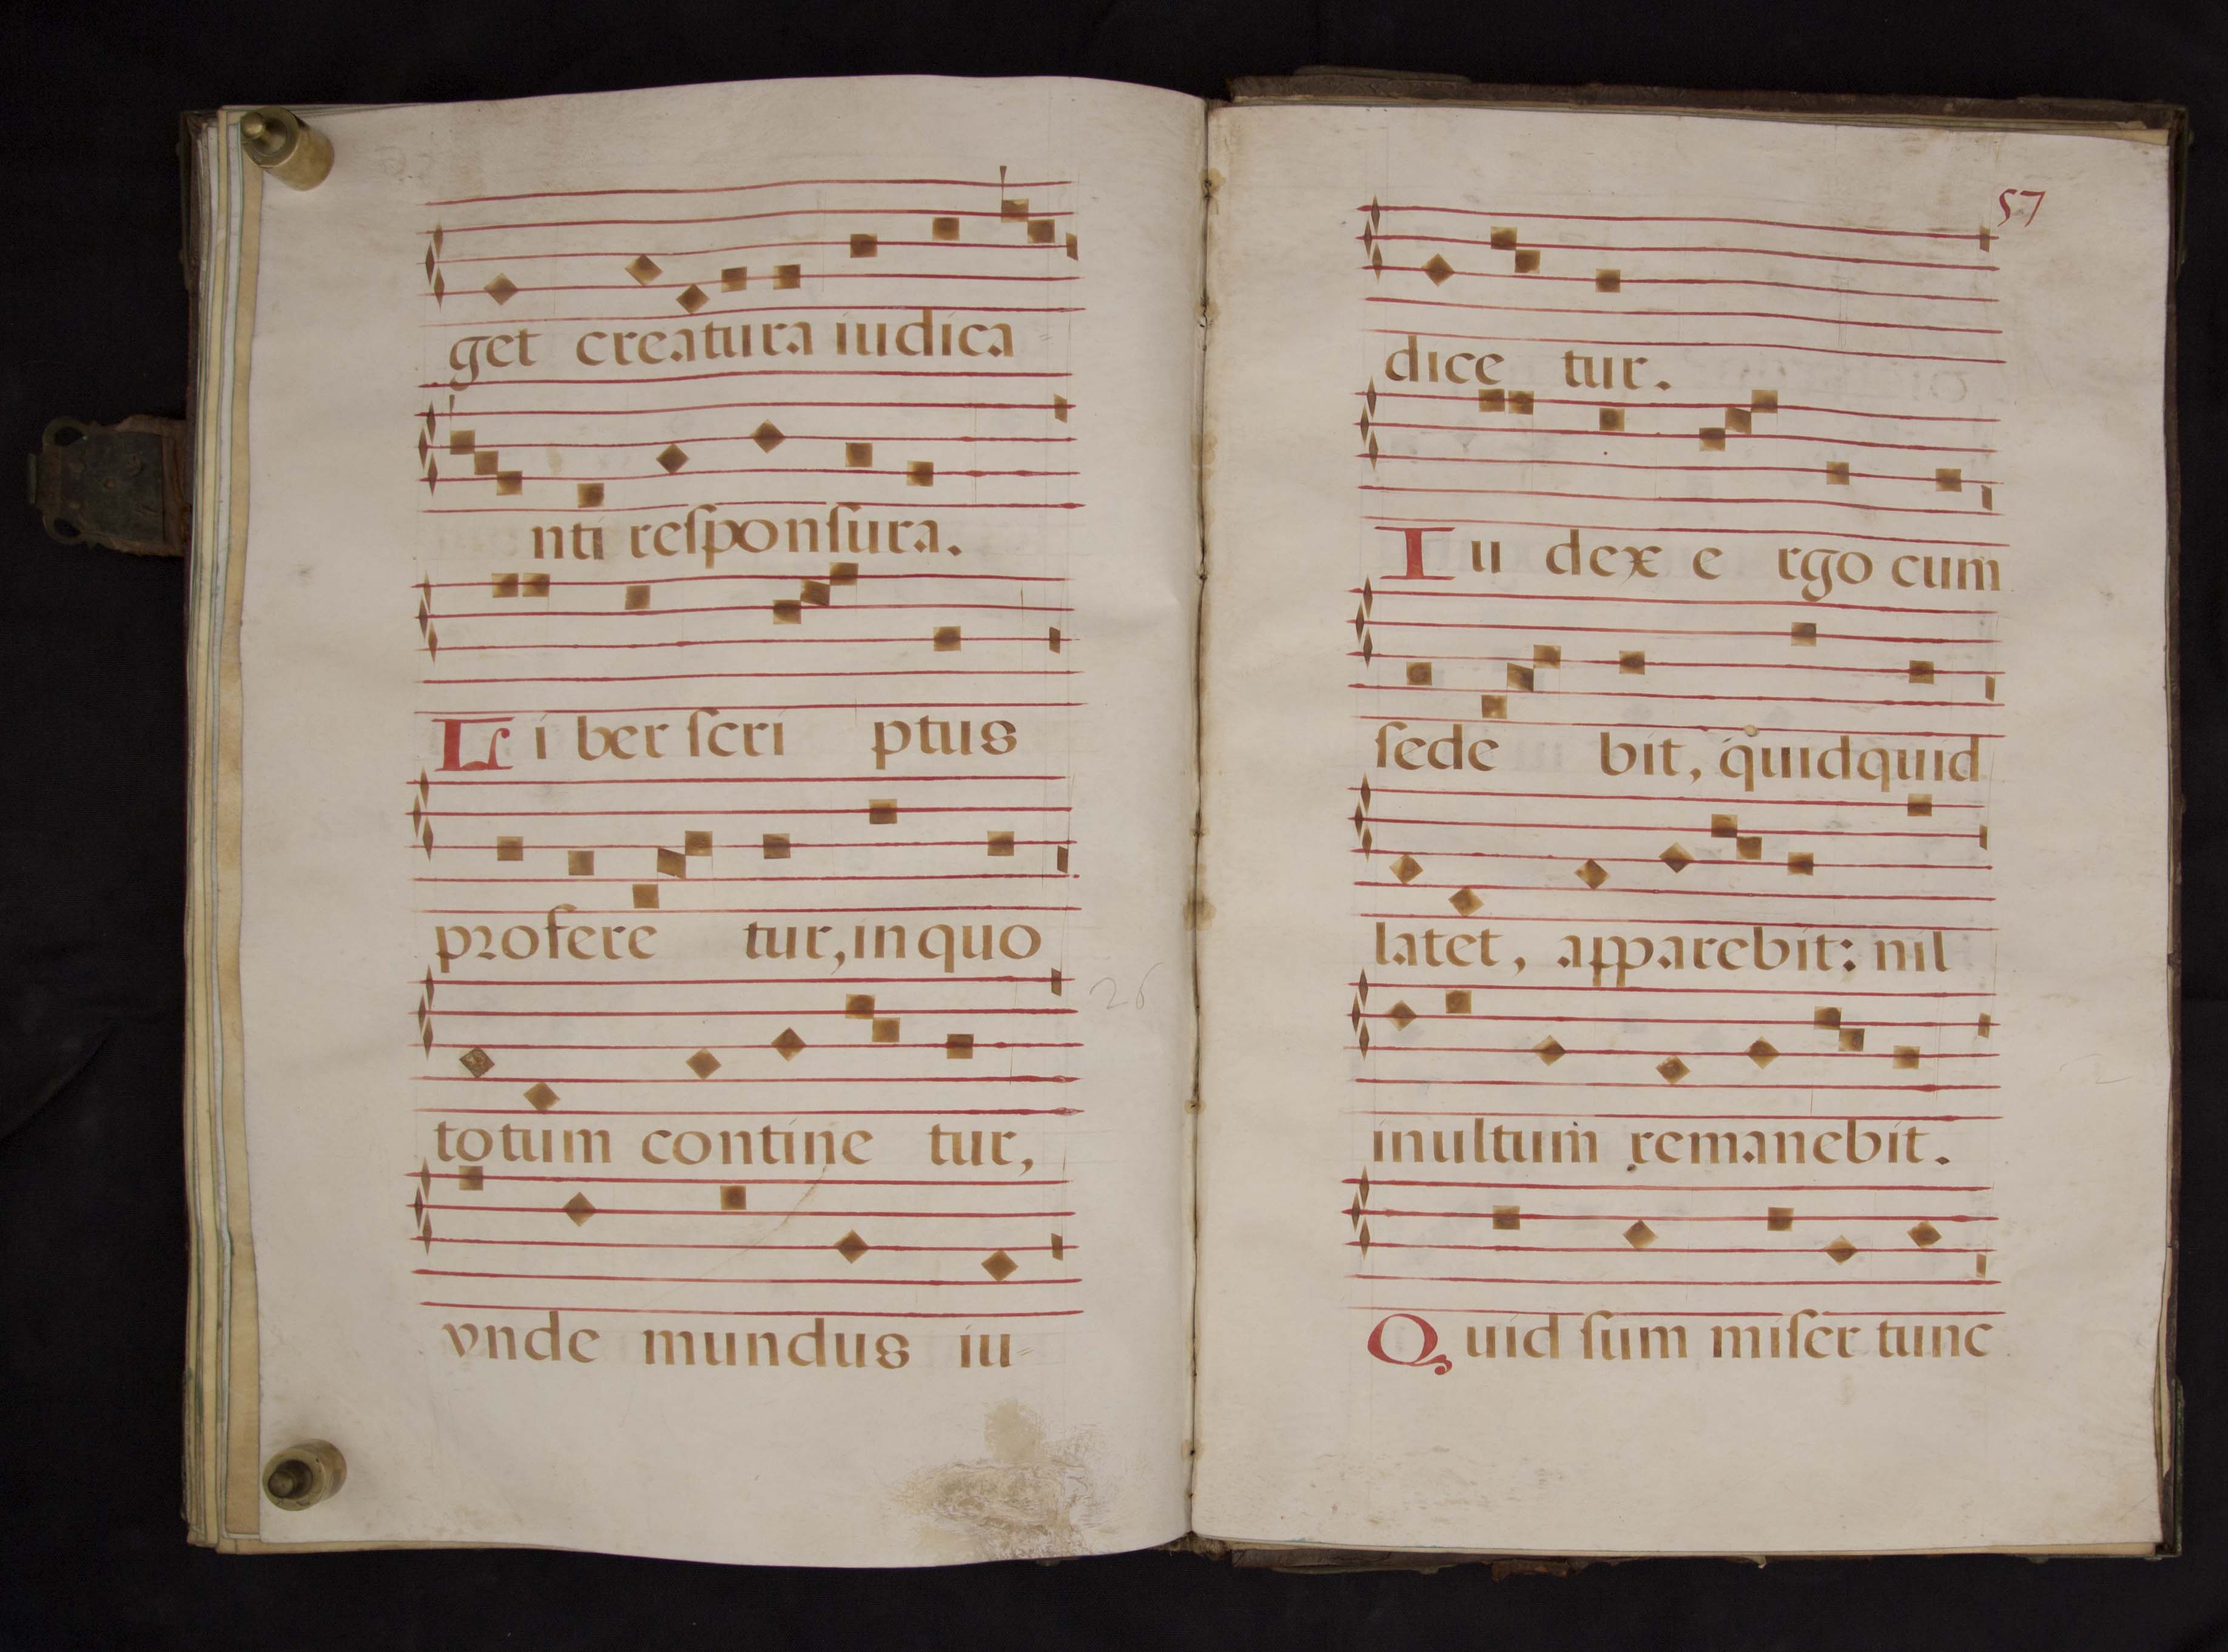 get creatura iudica
nti reſponſura.
Li ber ſcri ptus
profere tur, in quo
totum contine tur,
vnde mundus iu-
26
57
dice tur.
Iu dex e rgo cum
ſede bit, quidquid
latet, apparebit: nil
inultum remanebit.
Quid ſum miſer tunc